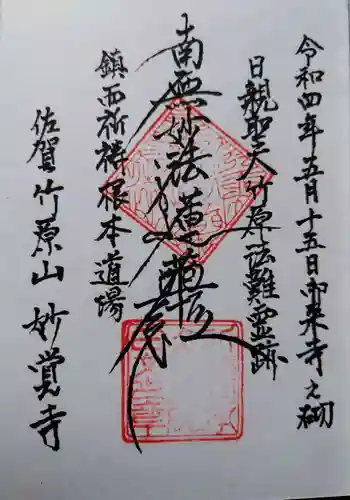 令和四年五月十五日御来寺之砌
日親聖人竹原法難霊跡
南無妙法蓮華経
鎮西祈祷根本道場
佐賀竹原山妙覚寺